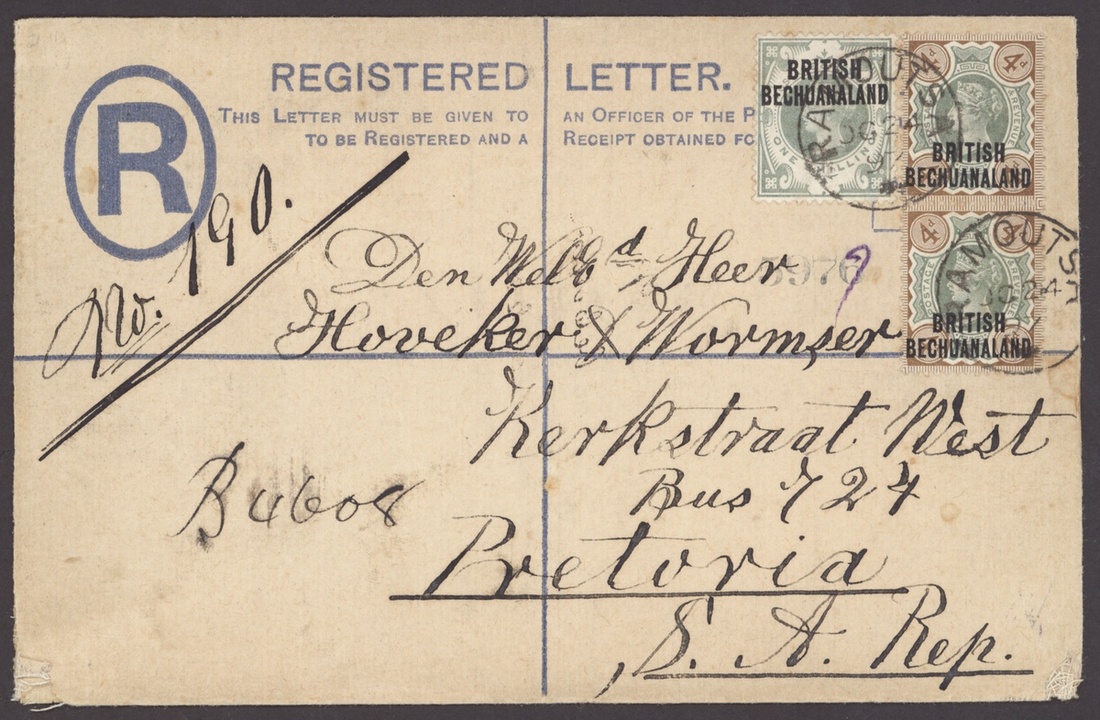 REGISTERED LETTER.
THIS LETTER MUST BE GIVEN TO AN OFFICER OF THE P
TO BE REGISTERED AND A RECEIPT OBTAINED FO
R
BRITISH
BECHUANALAND
ONE SHILLING
4d 4d
REVENUE
BRITISH
BECHUANALAND
4d 4d
POSTAGE REVENUE
BRITISH
BECHUANALAND
RAMOUTSA
OC 24
RAMOUTSA
OC 24
190.
Den Weled Heer
5976
Hoveker & Wormser
Kerkstraat West
Bus 724
B 4608
Pretoria
S. A. Rep.